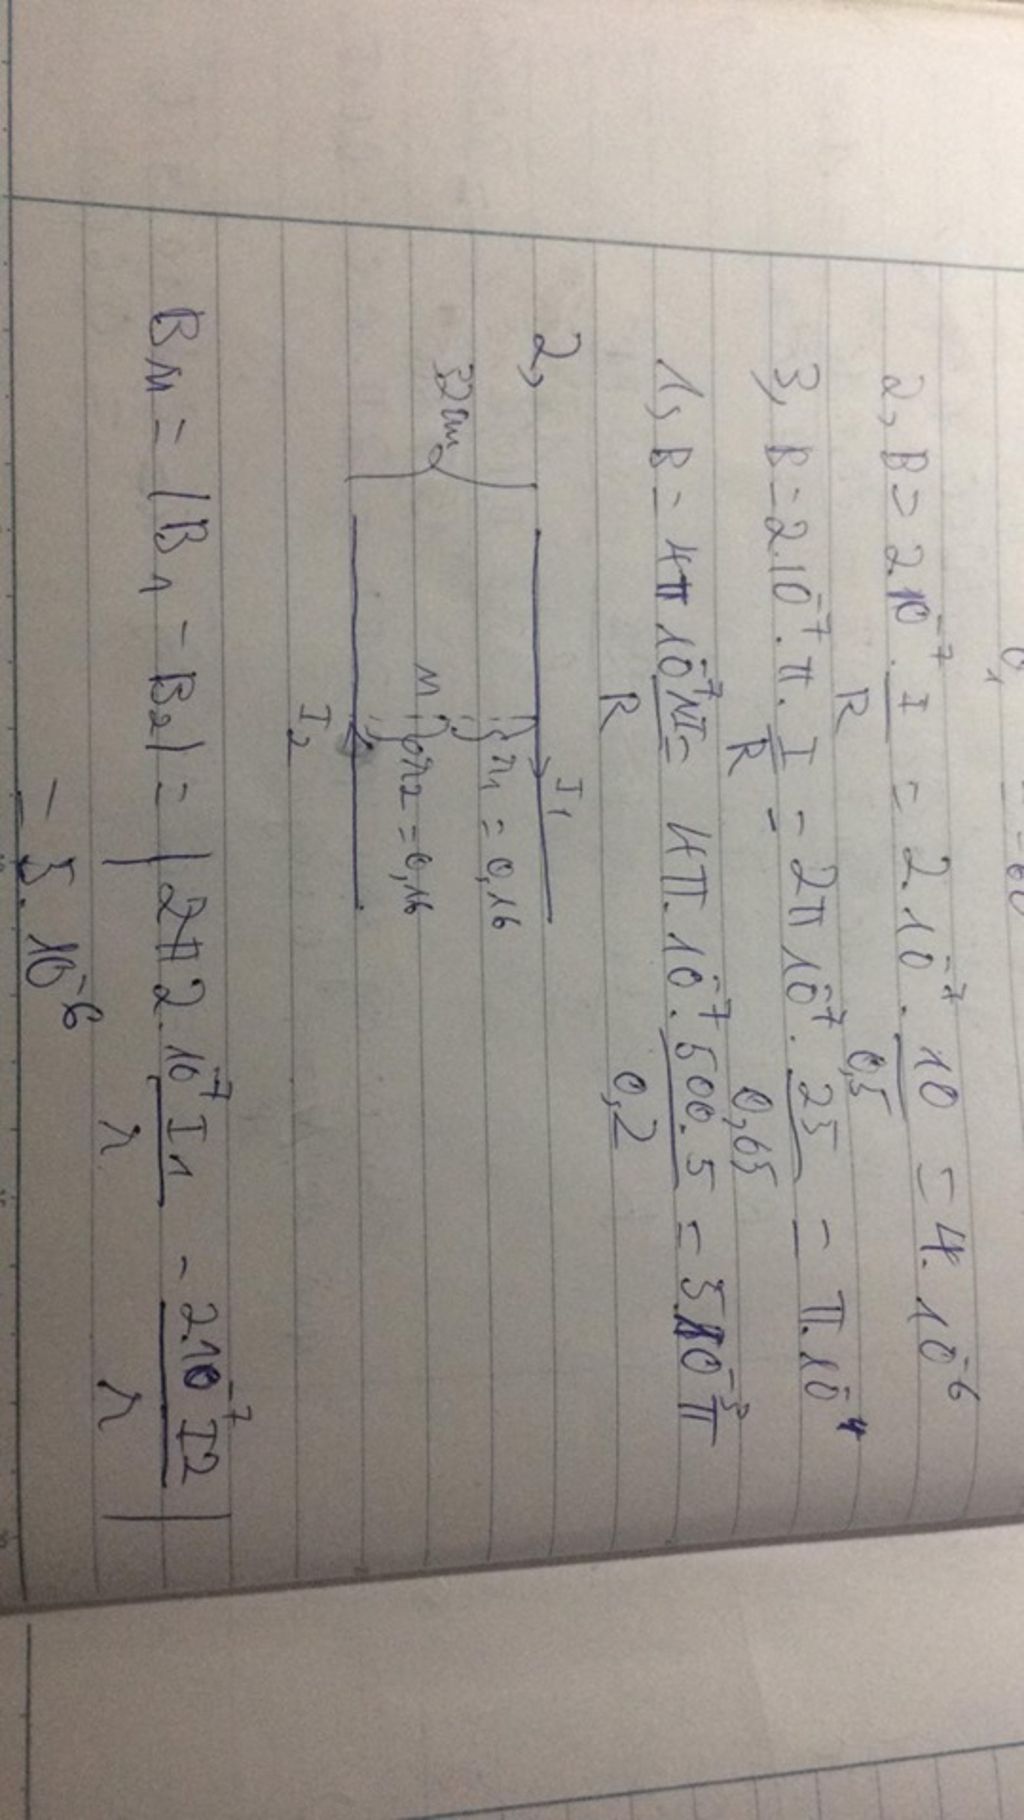 2, B = 2.10⁻⁷ . I/R = 2.10⁻⁷ . 10/0,5 = 4.10⁻⁶
3, B = 2.10⁻⁷ . π . I/R = 2π 10⁻⁷ . 25/0,65 = π.10⁻⁴
1, B = 4π 10⁻⁷ NI/R = 4π.10⁻⁷ . 500.5/0,2 = 5.10⁻³ π
2,
I₁
32cm
r₁ = 0,16
M
r₂ = 0,16
I₂
B_M = |B₁ - B₂| = | 2π 2.10⁻⁷ I1/r - 2.10⁻⁷ I2/r |
= 5.10⁻⁶